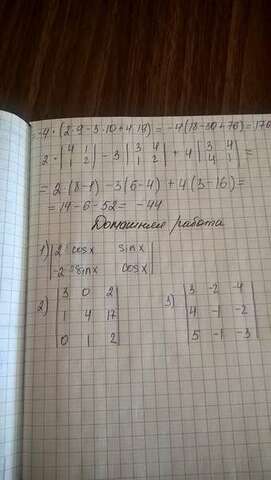 = -4 · (2·9 - 3·10 + 4·19) = -4(18-30+76) = 176
2 · |4 1| - 3 |3 4| + 4 |3 4| =
|1 2| |1 2| |4 1|
= 2·(8-1) - 3(6-4) + 4(3-16) =
= 14 - 6 - 52 = -44
Домашняя работа
1) |2 cosx sinx|
|-2 sinx cosx|
2) |3 0 2|
|1 4 17|
|0 1 2|
3) |3 -2 -4|
|4 -1 -2|
|5 -1 -3|